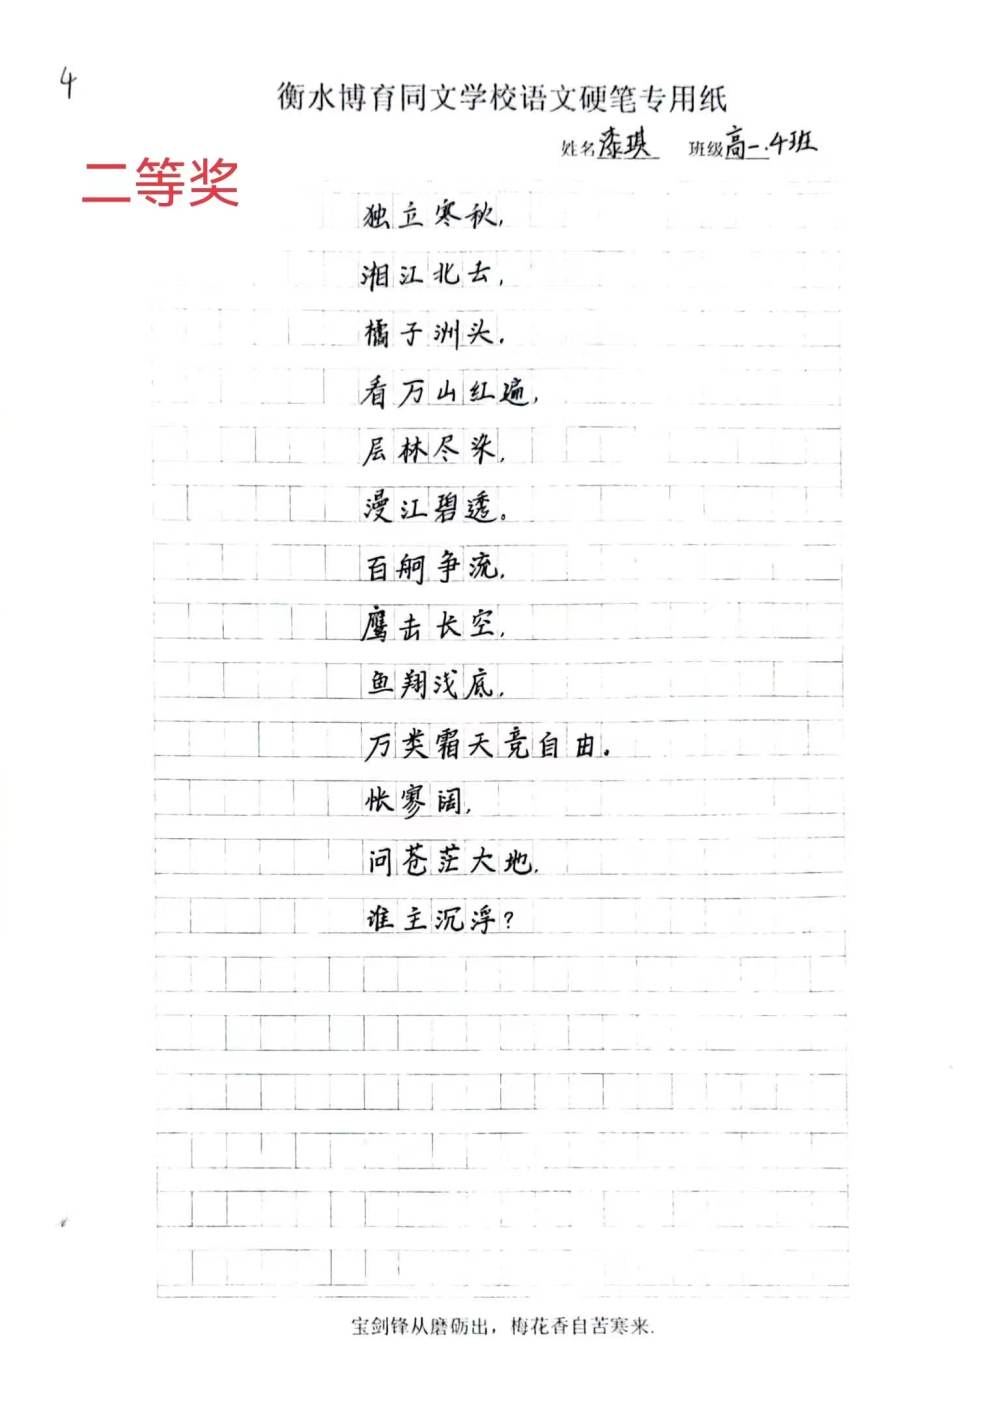 4
衡水博育同文学校语文硬笔专用纸
姓名漆琪 班级高一.4班
二等奖
独立寒秋,
湘江北去,
橘子洲头,
看万山红遍,
层林尽染,
漫江碧透。
百舸争流,
鹰击长空,
鱼翔浅底,
万类霜天竞自由.
怅寥阔,
问苍茫大地,
谁主沉浮?
宝剑锋从磨砺出，梅花香自苦寒来.